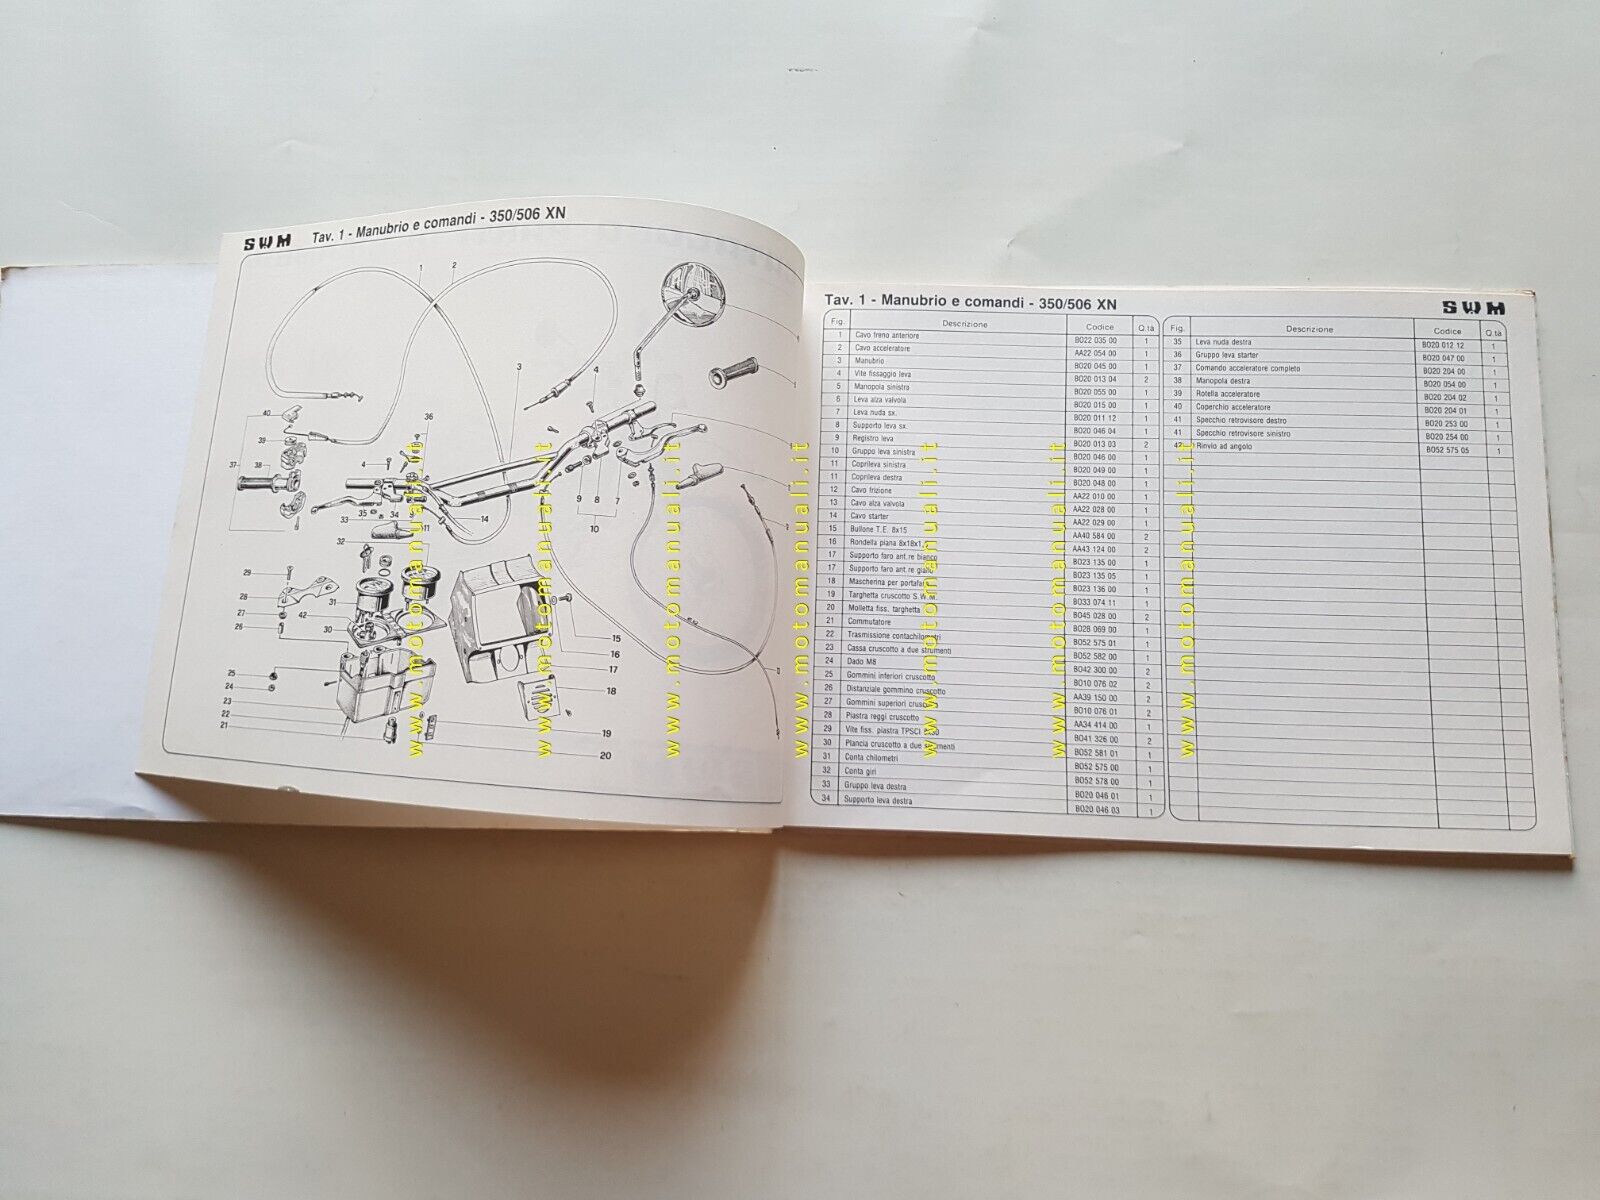 SWM Tav. 1 - Manubrio e comandi - 350/506 XN
1 2
3 4
40
36
39
37 38
4
35 34
33
9 8 7
14
10
11
32
29
28 31
27 42
26 30
15
16
17
25
24 18
23
22
21
19
20
Tav. 1 - Manubrio e comandi - 350/506 XN SWM
Fig. Descrizione Codice Q.tà
1 Cavo freno anteriore B022 035 00 1
2 Cavo acceleratore AA22 054 00 1
3 Manubrio B020 045 00 1
4 Vite fissaggio leva B020 013 04 2
5 Manopola sinistra B020 055 00 1
6 Leva alza valvola B020 015 00 1
7 Leva nuda sx. B020 011 12 1
8 Supporto leva sx. B020 046 04 1
9 Registro leva B020 013 03 2
10 Gruppo leva sinistra B020 046 00 1
11 Coprileva sinistra B020 049 00 1
11 Coprileva destra B020 048 00 1
12 Cavo frizione AA22 010 00 1
13 Cavo alza valvola AA22 028 00 1
14 Cavo starter AA22 029 00 1
15 Bullone T.E. 8x15 AA40 584 00 2
16 Rondella piana 8x18x1, AA43 124 00 2
17 Supporto faro ant.re bianco B023 135 00 1
17 Supporto faro ant.re giallo B023 135 05 1
18 Mascherina per portafaro B023 136 00 1
19 Targhetta cruscotto S.W.M. B033 074 11 1
20 Molletta fiss. targhetta B045 028 00 2
21 Commutatore B028 069 00 1
22 Trasmissione contachilometri B052 575 01 1
23 Cassa cruscotto a due strumenti B052 582 00 1
24 Dado M8 B042 300 00 2
25 Gommini inferiori cruscotto B010 076 02 2
26 Distanziale gommino cruscotto AA39 150 00 2
27 Gommini superiori cruscotto B010 076 01 2
28 Piastra reggi cruscotto AA34 414 00 1
29 Vite fiss. piastra TPSCI 8x30 B041 326 00 2
30 Plancia cruscotto a due strumenti B052 581 01 1
31 Conta chilometri B052 575 00 1
32 Conta giri B052 578 00 1
33 Gruppo leva destra B020 046 01 1
34 Supporto leva destra B020 046 03 1
Fig. Descrizione Codice Q.tà
35 Leva nuda destra B020 012 12 1
36 Gruppo leva starter B020 047 00 1
37 Comando acceleratore completo B020 204 00 1
38 Manopola destra B020 054 00 1
39 Rotella acceleratore B020 204 02 1
40 Coperchio acceleratore B020 204 01 1
41 Specchio retrovisore destro B020 253 00 1
41 Specchio retrovisore sinistro B020 254 00 1
42 Rinvio ad angolo B052 575 05 1
www.motomanuali.it
www.motomanuali.it
www.motomanuali.it
www.motomanuali.it
www.motomanuali.it
www.motomanuali.it
www.motomanuali.it